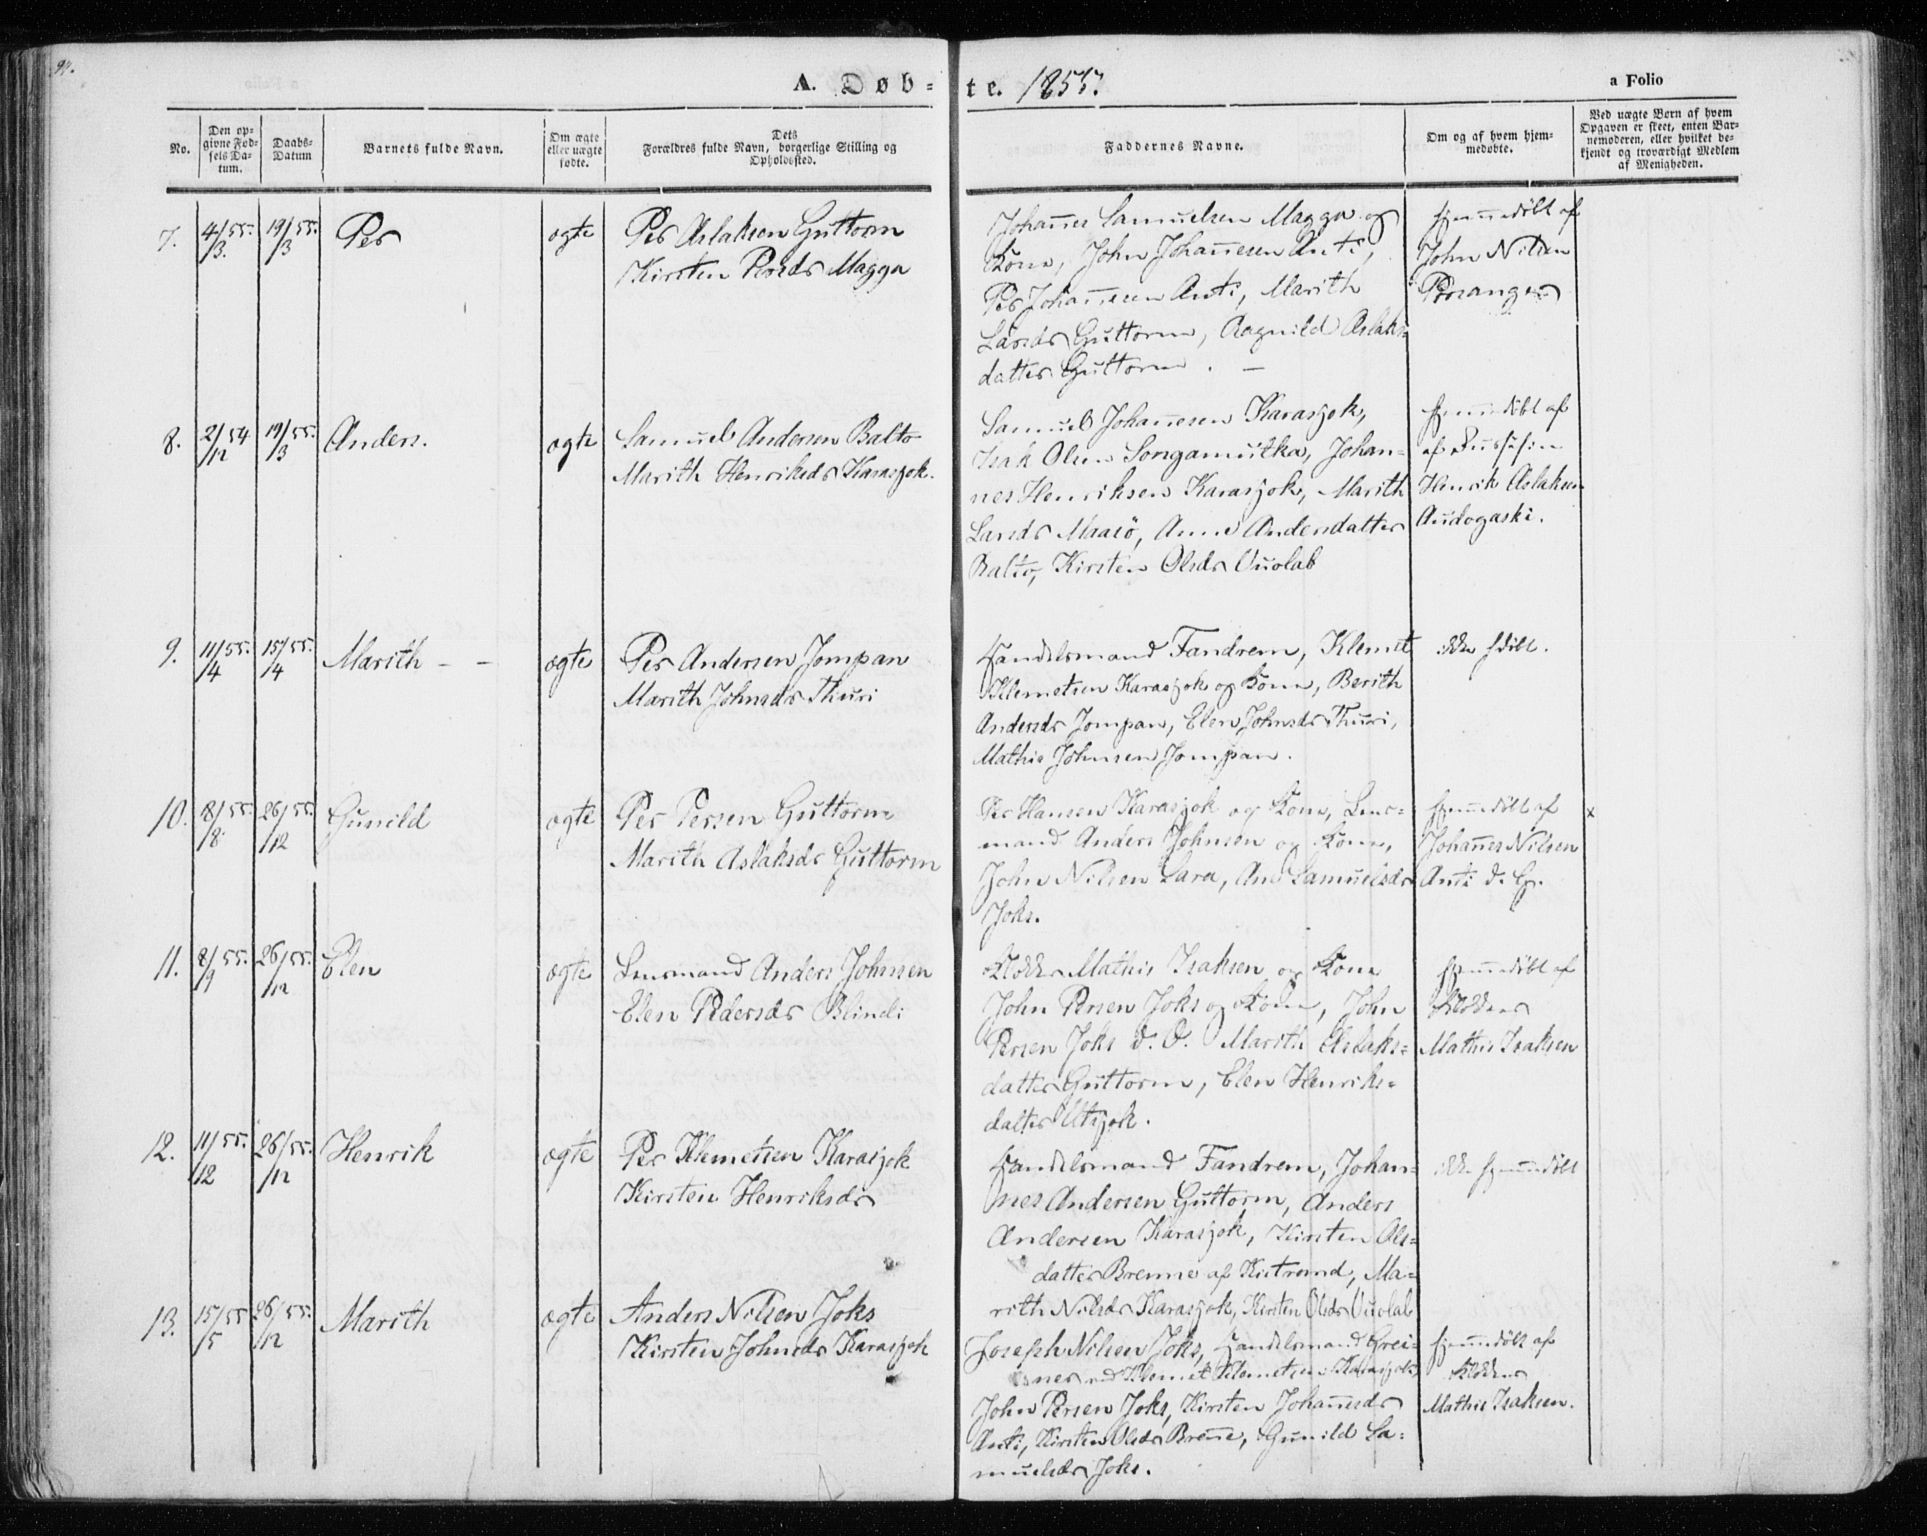 94.
A. Døb-
te. 1855.
a Folio
No.
Den op-
givne Fød-
sels Da-
tum.
Daabs-
Datum
Barnets fulde Navn.
Om ægte
eller uægte
fødte.
Dets
Forældres fulde Navn, borgerlige Stilling og
Opholdssted.
Faddernes Navne.
Om og af hvem hjem-
medøbte.
Ved uægte Børn af hvem
Opgaven er skeet, enten Bar-
nemoderen, eller hvilket be-
kjendt og troværdigt Medlem
af Menigheden.
7.
4/55.
/3.
19/55.
/3
Per
ægte
Per Aslaksen Guttorm
Kirsten Persds Magga
Johanes Samuelsen Magga og
Kone, John Johanesen Anti,
Per Johanesen Anti, Marith
Larsds Guttorm, Ragnild Aslaks-
datter Guttorm. —
hjemedøbt af
John Nilsen
Porsanger
8.
2/54
/12
19/55.
/3
Anders.
ægte
Samuel Andersen Balto
Marith Henriksds Karasjok.
Samuel Johanesen Karasjok,
Isak Olsen Songamutka, Johan-
nes Henriksen Karasjok, Marith
Larsds Maasö, Anne Andersdatter
Balto, Kirsten Olsds Vuolab
hjemedøbt af
af
Henrik Aslaksen
Audogaski.
9.
11/55.
/4
15/55.
/4
Marith - -
ægte
Per Andersen Jompan
Marith Johnsds Thuri
Handelsmand Fandrem, Klemet
Klemetsen Karasjok og Kone, Berith
Andersds Jompan, Elen Johnsds Thuri,
Mathis Johnsen Jompan.
ikke hdöbt.
10.
18/55.
/8
26/55.
/12
Gunild
ægte
Per Persen Guttorm
Marith Aslaksds Guttorm
Per Hansen Karasjok og Kone, Lens-
mand Anders Johnsen og Kone,
John Nilsen Sara, Ane Samuelsds
Joks.
hjemedøbt af
Johanes Nilsen
Anti
x
11.
8/55.
/9
26/55.
/12
Elen
ægte
Lensmand Anders Johnsen
Elen Pedersds Blindi
Klokker Mathis Isaksen og Kone
John Persen Joks og Kone, John
Persen Joks d. O. Marith Aslaks-
datter Guttorm, Elen Henriks-
datter Utsjok.
hjemedøbt af
Klokker
Mathis Isaksen
12.
11/55.
/12
26/55.
/12
Henrik
ægte
Per Klemetsen Karasjok
Kirsten Henriksds
Handelsmand Fandrem, Johan-
nes Andersen Guttorm, Anders
Andersen Karasjok, Kirsten Ols-
datter Brenne af Kistrand, Ma-
rith Nilsds Karasjok, Kirsten Olsds Vuolab
ikke hjemedøbt
13.
15/55
/5
26/55.
/12
Marith
ægte
Anders Nilsen Joks
Kirsten Johnsds Karasjok
Joseph Nilsen Joks, Handelsmand Grei-
ner Klemet Klemetsen Karasjok
John Persen Joks, Kirsten Johanesds
Anti, Kirsten Olsds Brene, Gunild Sa-
muelsds Joks.
hjemedøbt af
Klokker
Mathis Isaksen.